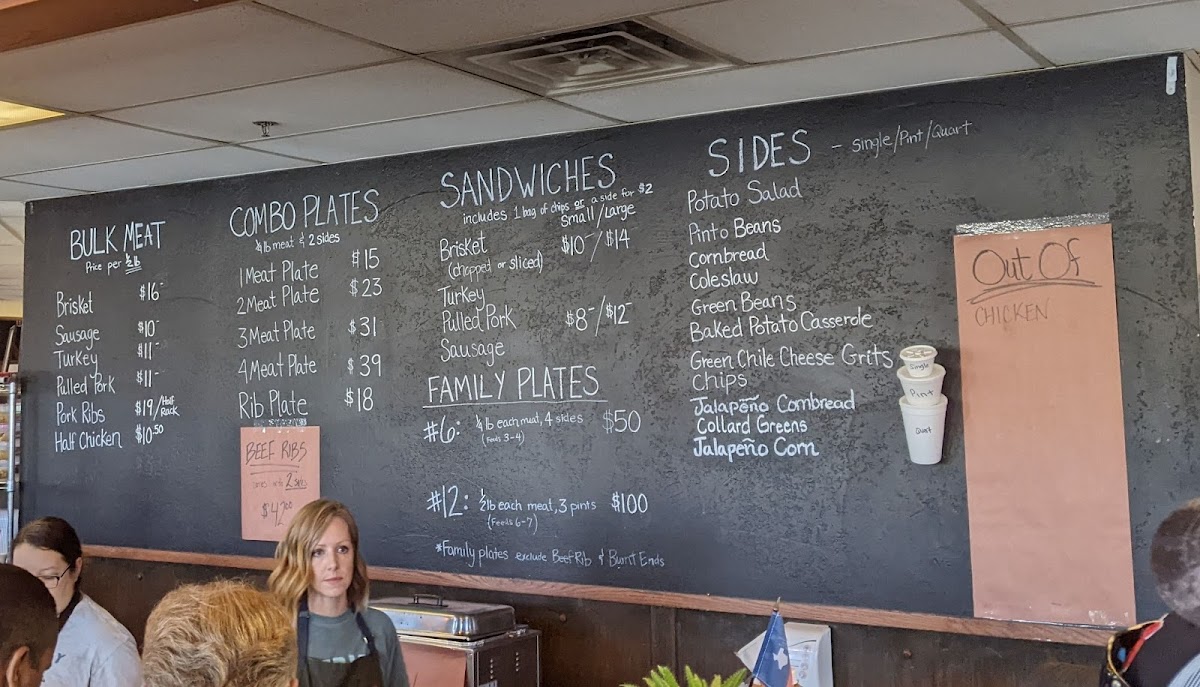 BULK MEAT
Price per ½ lb
Brisket $16-
Sausage $10-
Turkey $11-
Pulled Pork $11-
Pork Ribs $19/Half Rack
Half Chicken $10.50
COMBO PLATES
¼ lb meat & 2 sides
1 Meat Plate $15
2 Meat Plate $23
3 Meat Plate $31
4 Meat Plate $39
Rib Plate $18
BEEF RIBS
2 sides
$42.00
SANDWICHES
includes 1 bag of chips or a side for $2
Small/Large
Brisket $10-/$14
(chopped or sliced)
Turkey
Pulled Pork $8-/$12-
Sausage
FAMILY PLATES
#6: ¼ lb each meat, 4 sides $50
(Feeds 3-4)
#12: ½ lb each meat, 3 pints $100
(Feeds 6-7)
*Family plates exclude Beef Rib & Burnt Ends
SIDES - Single/Pint/Quart
Potato Salad
Pinto Beans
Cornbread
Coleslaw
Green Beans
Baked Potato Casserole
Green Chile Cheese Grits
Chips
Jalapeño Cornbread
Collard Greens
Jalapeño Corn
Single
Pint
Quart
Out Of
CHICKEN